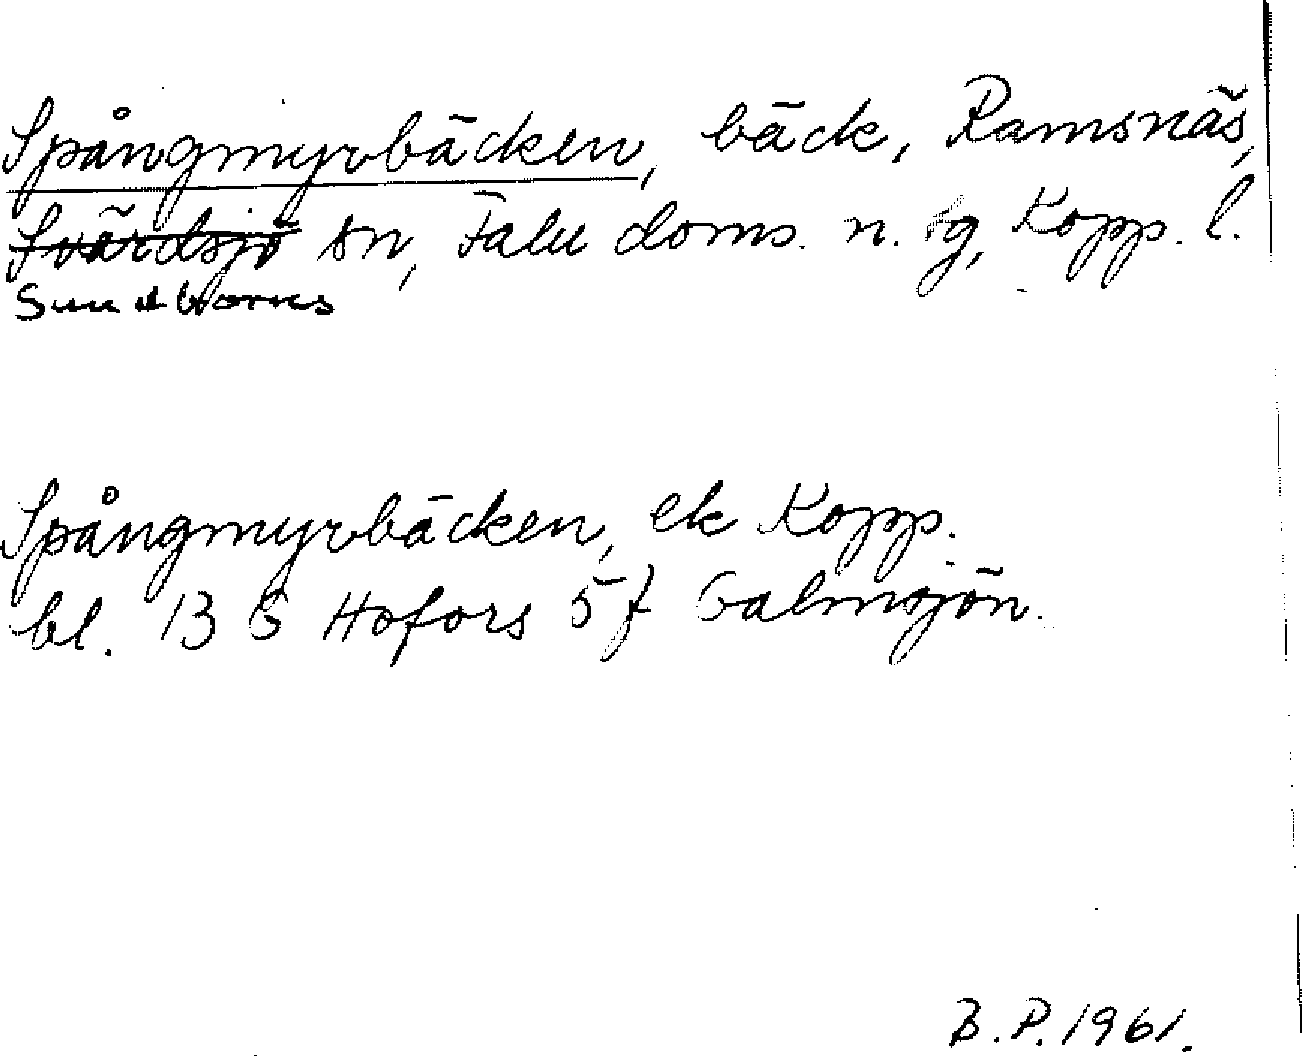 Spångmyrbäcken, bäck, Ramsnäs,
Svärdsjö sn, Falu doms. n. tg, Kopp. l.
Sundborns
Spångmyrbäcken, ek Kopp.
bl. 13 G Hofors 5 f Galmsjön.
B. P. 1961.